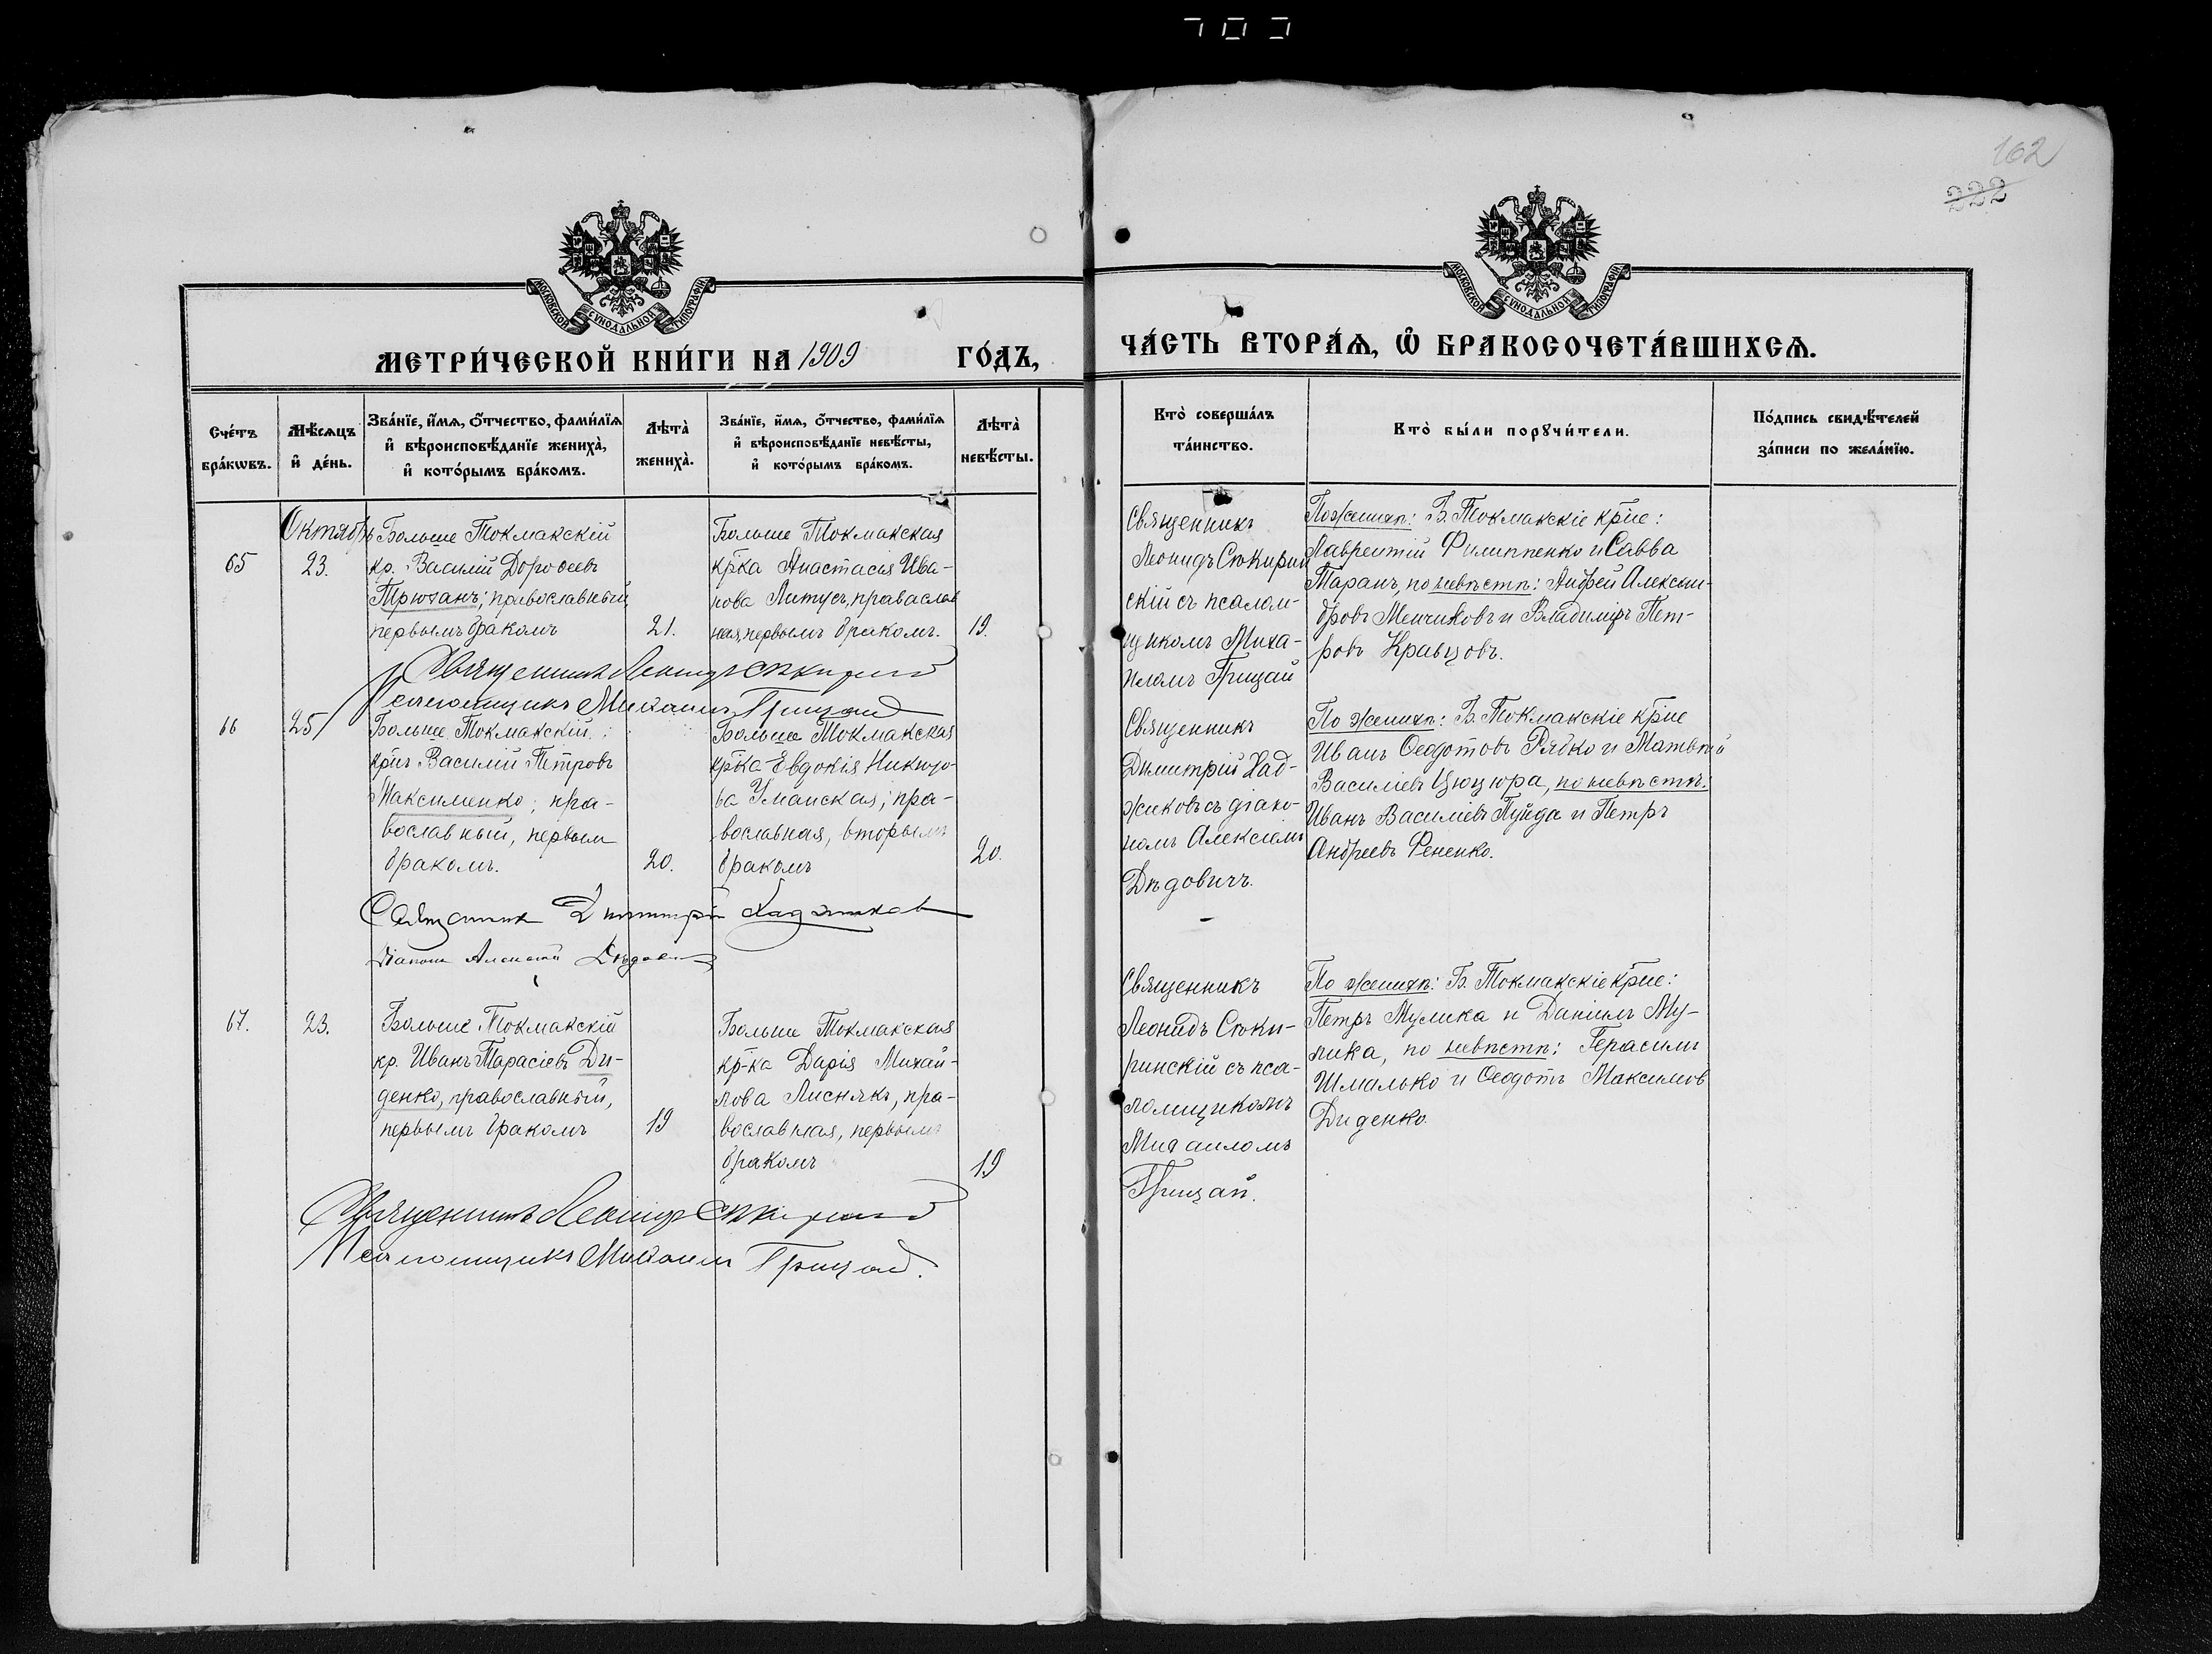 162
222
МОСКОВСКОЙ СѴНОДАЛЬНОЙ ТИПОГРАФІИ
МОСКОВСКОЙ СѴНОДАЛЬНОЙ ТИПОГРАФІИ
МЕТРИ́ЧЕСКОЙ КНИ́ГИ НА 1909 ГО́ДЪ,
ЧА́СТЬ ВТОРА́Ѧ, Ѽ БРАКОСОЧЕТА́ВШИХСѦ.
Сче́тъ бра́кѡвъ.
Мѣ́сѧцъ и҆ де́нь.
Зва́нїе, и҆́мѧ, ѻ҆́тчество, фами́лїѧ и҆ вѣроисповѣ́данїе жениха̀, и҆ кото́рымъ бра́комъ.
Лѣта̀ жениха̀.
Зва́нїе, и҆́мѧ, ѻ҆́тчество, фами́лїѧ и҆ вѣроисповѣ́данїе невѣ́сты, и҆ кото́рымъ бра́комъ.
Лѣта̀ невѣ́сты.
Кто̀ соверша́лъ та́инство.
Кто̀ бы́ли порꙋчи́тели.
По́дпись свидѣ́телей за́писи по жела́нїю.
65
Октябрь
23.
Больше Токмакскій
кр. Василій Дороѳеевъ
Трюханъ; православный,
первымъ бракомъ
21.
Больше Токмакская
кр-ка Анастасія Ива-
нова Литусъ, православ
ная, первымъ бракомъ.
19.
Священникъ
Леонидъ Сѣкирин
скій съ псалом-
щикомъ Миха-
иломъ Грицай
По женихѣ: Б. Токмакскіе кр-не:
Лаврентій Филиппенко и Савва
Таранъ, по невѣстѣ: Андрей Алексан-
дровъ Менчиковъ и Владиміръ Пет-
ровъ Кравцовъ.
Священникъ Леонидъ Сѣкиринскій
Псаломщикъ Михаилъ Грицай
66
25
Больше Токмакскій
кр-нъ Василій Петровъ
Максименко; пра-
вославный, первым
бракомъ.
20.
Больше Токмакская
кр-ка Евдокія
Уманская; пра-
вославная, вторымъ
бракомъ
20.
Священникъ
Димитрій Хад-
жиковъ съ діако-
номъ Алексіемъ
Дѣдовичъ.
По женихѣ: Б. Токмакскіе кр-не
Иванъ Ѳеодотовъ Рябко и Матвѣй
Василіевъ Цюцюра, по невѣстѣ:
Иванъ Василіевъ Пуйда и Петръ
Андреевъ Фененко.
Священник Димитрій Хаджиков
Діаконъ Алексій Дѣдович
67.
23.
Больше Токмакскій
кр. Иванъ Тарасіевъ Ди-
денко, православный,
первымъ бракомъ
19
Больше Токмакская
кр-ка Дарія Михай-
лова Лиснякъ, пра-
вославная, первымъ
бракомъ
19
Священникъ
Леонидъ Сѣки-
ринскій съ пса-
ломщикомъ
Михаиломъ
Грицай.
По женихѣ: Б. Токмакскіе кр-не:
Петръ Мулика и Даніилъ Му-
лика, по невѣстѣ: Герасимъ
Шмалько и Ѳеодотъ Максимов
Диденко.
Священникъ Леонидъ Сѣкиринскій
Псаломщикъ Михаилъ Грицай.